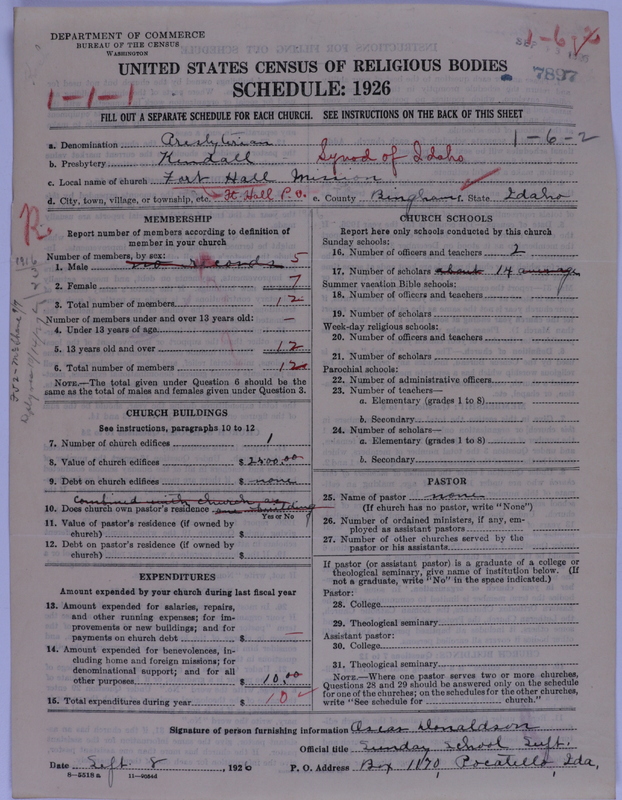 DEPARTMENT OF COMMERCE
BUREAU OF THE CENSUS
WASHINGTON
1-6
7897
UNITED STATES CENSUS OF RELIGIOUS BODIES
1-1-1
SCHEDULE: 1926
FILL OUT A SEPARATE SCHEDULE FOR EACH CHURCH. SEE INSTRUCTIONS ON THE BACK OF THIS SHEET
1-6-2
a. Denomination Presbyterian
b. Presbytery Kendall Synod of Idaho
c. Local name of church Fort Hall Mission
d. City, town, village, or township, etc. Ft Hall P.O. e. County Bingham State Idaho
R
MEMBERSHIP
Report number of members according to definition of
member in your church
Number of members, by sex:
1. Male no records 5
2. Female 7
3. Total number of members 12
Number of members under and over 13 years old: —
4. Under 13 years of age
5. 13 years old and over 12
6. Total number of members 12
NOTE.—The total given under Question 6 should be the
same as the total of males and females given under Question 3.
CHURCH BUILDINGS
See instructions, paragraphs 10 to 12
7. Number of church edifices 1
8. Value of church edifices $ 2400.00
9. Debt on church edifices $ none
Combined with church as
10. Does church own pastor's residence one building
Yes or No
11. Value of pastor's residence (if owned by
church) $
12. Debt on pastor's residence (if owned by
church) $
EXPENDITURES
Amount expended by your church during last fiscal year
13. Amount expended for salaries, repairs,
and other running expenses; for im-
provements or new buildings; and for
payments on church debt $ —
14. Amount expended for benevolences, in-
cluding home and foreign missions; for
denominational support; and for all
other purposes $ 10.00
15. Total expenditures during year $ 10
CHURCH SCHOOLS
Report here only schools conducted by this church
Sunday schools:
16. Number of officers and teachers 2
17. Number of scholars about 14 average
Summer vacation Bible schools:
18. Number of officers and teachers
19. Number of scholars
Week-day religious schools:
20. Number of officers and teachers
21. Number of scholars
Parochial schools:
22. Number of administrative officers
23. Number of teachers—
a. Elementary (grades 1 to 8)
b. Secondary
24. Number of scholars—
a. Elementary (grades 1 to 8)
b. Secondary
PASTOR
25. Name of pastor none
(If church has no pastor, write "None")
26. Number of ordained ministers, if any, em-
ployed as assistant pastors
27. Number of other churches served by the
pastor or his assistants
If pastor (or assistant pastor) is a graduate of a college or
theological seminary, give name of institution below. (If
not a graduate, write "No" in the space indicated.)
Pastor:
28. College
29. Theological seminary
Assistant pastor:
30. College
31. Theological seminary
NOTE.—Where one pastor serves two or more churches,
Questions 28 and 29 should be answered only on the schedule
for one of the churches; on the schedules for the other churches,
write "See schedule for church."
Signature of person furnishing information Oscar Donaldson
Official title Sunday School Supt.
Date Sept 8, 1926 P. O. Address Box 1170, Pocatello, Ida,
8-5518 a